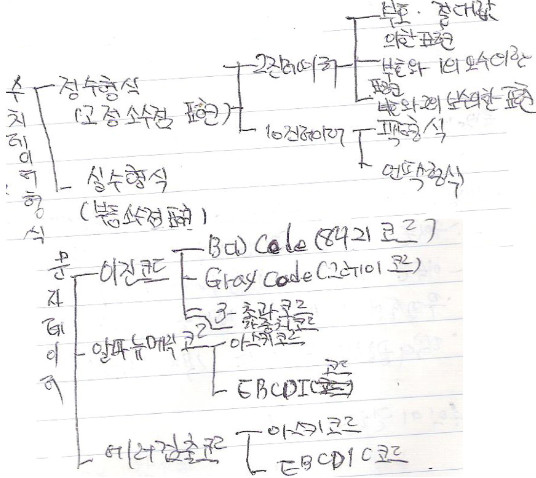 수치데이터형식
정수형식
(고정소수점 표현)
2진데이터
부호·절대값
의한표현
부호와 1의 보수에 의한
표현
부호와 2의 보수의한 표현
10진데이터
팩형식
언팩형식
실수형식
(부동소수점표현)
문자데이터
이진코드
BCD Code (8421 코드)
Gray Code (그레이 코드)
3-초과코드
가중치코드
알파뉴메릭 코드
아스키코드
EBCDIC 코드
에러검출코드
아스키코드
EBCDIC 코드